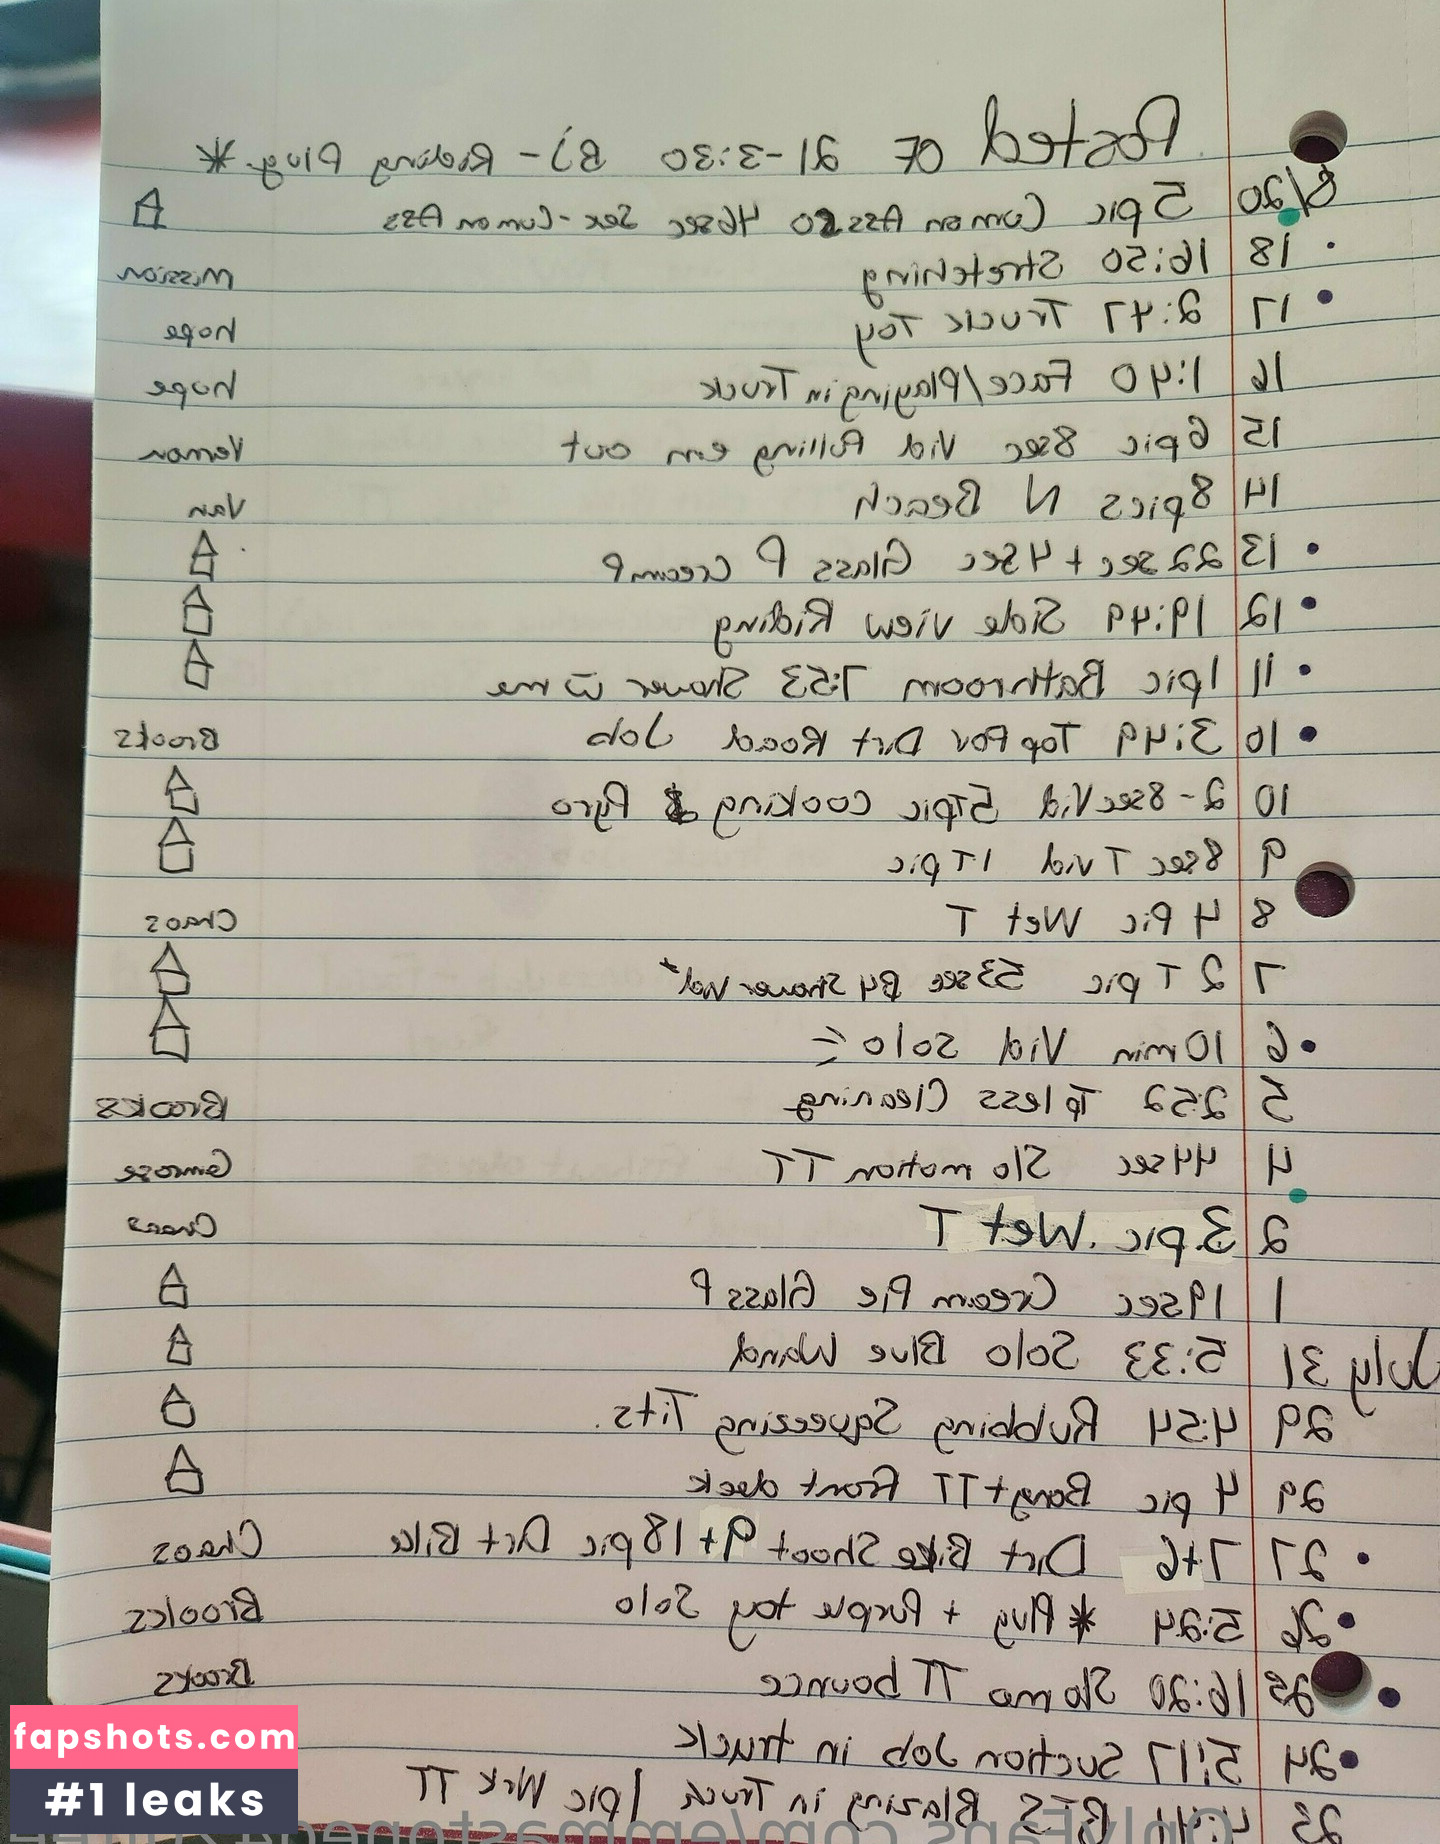 Posted OF 21-3:30 BJ - Riding Plug *
8/20 5 pic Cum on Ass 20 46sec Sex-Cum on Ass
18 16:50 Stretching Mission
17 2:47 Truck Toy hope
16 1:40 Face/Playing in Truck hope
15 6 pic 8sec Vid Pulling em out Vernon
14 8pics N Beach Van
13 22sec + 4sec Glass P CreamP
12 19:49 Side view Riding
11 1pic Bathroom 7:53 Shower w me
10 3:49 Top Pov Dirt Road Job Brooks
10 2-8sec Vid 5Tpic cooking & Pyro
9 8sec T vid 1T pic
8 4 Pic Wet T Chaos
7 2 T pic 53sec B4 Shower Vid*
6 10min Vid Solo
5 2:52 Tpless Cleaning Brooks
4 44sec Slo motion TT Camrose
2 3 pic. Wet T Chaos
1 19sec Cream Pie Glass P
July 31 5:33 Solo Blue Wand
29 4:54 Rubbing Squeezing Tits.
29 4 pic Bong+TT Front deck
27 7+6 Dirt Bike Shoot 9+18pic Dirt Bike Chaos
26 5:24 * Plug + Purple toy Solo Brooks
25 16:20 Slo mo TT bounce Brooks
24 5:17 Suction Job in truck
23 4:41 BTS Blazing in Truck 1pic Wrk TT
fapshots.com
#1 leaks